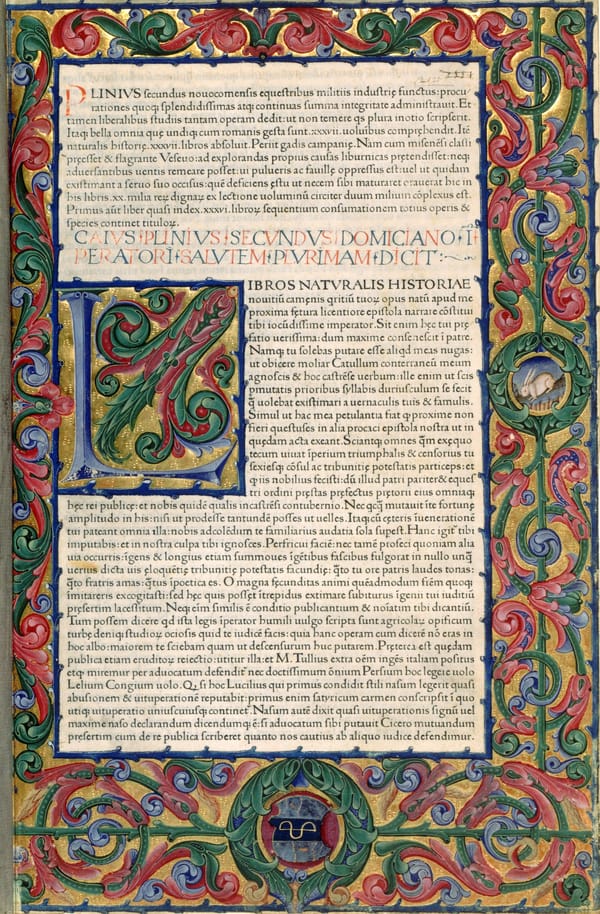 PLINIVS secundus nouocomensis equestribus militiis industrie functus: procu
rationes quoq; splendidissimas atq; continuas summa integritate administrauit. Et
tamen liberalibus studiis tantam operam dedit: ut non temere q̄s plura in otio scripserit.
Itaq; bella omnia quę undiq; cum romanis gesta sunt .xxxvii. uoluībus comprehendit. Itē
naturalis historię .xxxvii. libros absoluit. Periit gadis campanię. Nam cum misenēsi classi
pręesset & flagrante Veseuo: ad explorandas propius causas liburnicas prętendisset: neq;
aduersantibus uentis remeare posset: ui pulueris ac fauillę oppressus est: uel ut quidam
existimant a seruo suo occisus: quē deficiens ęstu ut necem sibi maturaret orauerat hic in
his libris .xx. milia reɤ dignaɤ ex lectione uoluminū circiter duum milium cōplexus est.
Primus aūt liber quasi index .xxxvi. libroɤ sequentium consumationem totius operis &
species continet tituloɤ.
CAIVS PLINIVS SECVNDVS DOMICIANO I
PERATORI SALVTEM PLVRIMAM DICIT
LIBROS NATVRALIS HISTORIAE
nouitiū camęnis q̄ritiū tuoɤ opus natū apud me
proxima fętura licentiore epistola narrare cōstitui
tibi iocūdissime imperator. Sit enim hęc tui prę
fatio uerissima: dum maximo consenescit ī patre.
Namq; tu solebas putare esse aliqd meas nugas:
ut obicere moliar Catullum conterraneū meum
agnoscis & hoc castrēse uerbum: ille enim ut scis
permutatis prioribus syllabis duriusculum se fecit
q̄ uolebat existimari a uernaculis tuis & famulis.
Simul ut hac mea petulantia fiat q̄ proxime non
fieri questus es in alia procaci epistola nostra ut in
quędam acta exeant. Sciantq; omnes q̄m ex ęquo
tecum uiuat īperium triumphalis & censorius tu
sexiesq; cōsul ac tribunitię potestatis particeps: et
q̄ iis nobilius fecisti: dū illud patri pariter & eques
tri ordini pręstas pręfectus prętorii eius omniaq;
hęc rei publicę: et nobis quidē qualis in castrēsi contubernio. Nec q̄cq̄ mutauit ī te fortunę
amplitudo in his: nisi ut prodesse tantundē posses ut uelles. Itaq; cū cęteris ī uenerationē
tui pateant omnia illa: nobis ad colēdum te familiarius audatia sola supest. Hanc igit̄ tibi
imputabis: et in nostra culpa tibi ignosces. Perfricui faciē: nec tamē profeci quoniam alia
uia occurris: īgens & longius etiam summoues īgētibus fascibus fulgorat in nullo unq̄
uerius dicta uis eloquētię tribunitię potestatis facundię: q̄to tu ore patris laudes tonas:
q̄to fratris amas: q̄tus ī poetica es. O magna fęcunditas animi quēadmodum frēm quoq;
imitareris excogitasti: sed hęc quis posset ītrepidus extimare subiturus īgenii tui iuditiū
pręsertim lacessitum. Neq; eīm similis ē conditio publicantium & noīatim tibi dicantiū.
Tum possem dicere qd ista legis īperator humili uulgo scripta sunt agricolaɤ opificum
turbę deniq; studioɤ ociosis quid te iudicē facis: qua hanc operam cum dicerē nō eras in
hoc albo: maiorem te sciebam quam ut descensurum huc putarem. Pręterea est quędam
publica etiam eruditoɤ reiectio: utitur illa: et M. Tullius extra oēm ingēs italiam positus
et q; miremur per aduocatum defendit̄ nec doctissimum ōnium Persium hoc legere uolo
Lelium Congium uolo. Q; si hoc Lucilius qui primus condidit stili nasum legerit quasi
lusionem & uituperatione reputabit: primus enim satyricum carmen conscripsit ī quo
utiq; uituperatio uniuscuiusq; continet̄. Nasum autē dixit quasi uituperationis signū uel
maxime naso declarandum dicendumq; ē: si aduocatum sibi putauit Cicero mutuandum
pręsertim cum de re publica scriberet quanto nos cautius ab aliquo iudice defendimur.